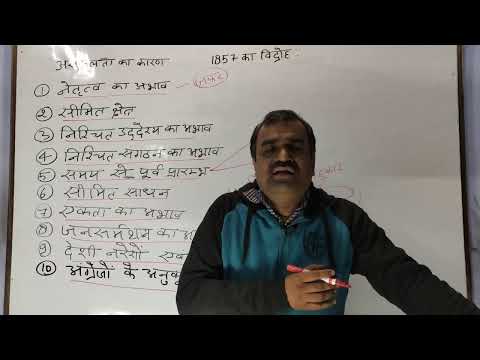 का कारण 1857 का विद्रोह
① नेतृत्व का अभाव
② सीमित क्षेत्र
③ निश्चित उद्देश्य का अभाव
④ निश्चित संगठन का अभाव
⑤ समय से पूर्व प्रारम्भ
⑥ सीमित साधन
⑦ एकता का अभाव
⑧ जनसमर्थन का
⑨ देशी नरेशों
⑩ अंग्रेजों के